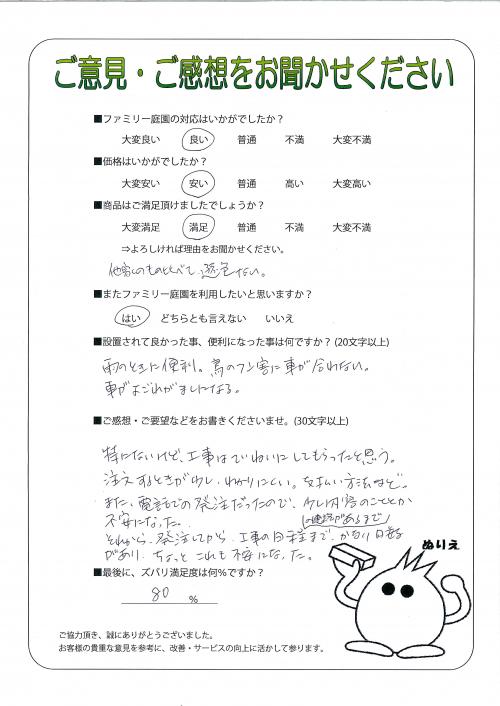 ご意見・ご感想をお聞かせください
■ファミリー庭園の対応はいかがでしたか？
大変良い 良い 普通 不満 大変不満
■価格はいかがでしたか？
大変安い 安い 普通 高い 大変高い
■商品はご満足頂けましたでしょうか？
大変満足 満足 普通 不満 大変不満
⇒よろしければ理由をお聞かせください。
他家のものとくらべて遜色ない。
■またファミリー庭園を利用したいと思いますか？
はい どちらとも言えない いいえ
■設置されて良かった事、便利になった事は何ですか？(20文字以上)
雨のときに便利。鳥のフン害に車が合わない。
車がよごれがましになる。
■ご感想・ご要望などをお書きくださいませ。(30文字以上)
特にないけど、工事はていねいにしてもらったと思う。
注文するときが少し、わかりにくい。支払い方法など。
また、電話での発注だったので、少し内容のこととか
不安になった。
(確認があるまで)
それから、発注してから、工事の日程まで、かなり日数
があり、ちょっとこれも不安になった。
■最後に、ズバリ満足度は何%ですか？
80 %
ぬりえ
ご協力頂き、誠にありがとうございました。
お客様の貴重な意見を参考に、改善・サービスの向上に活かして参ります。